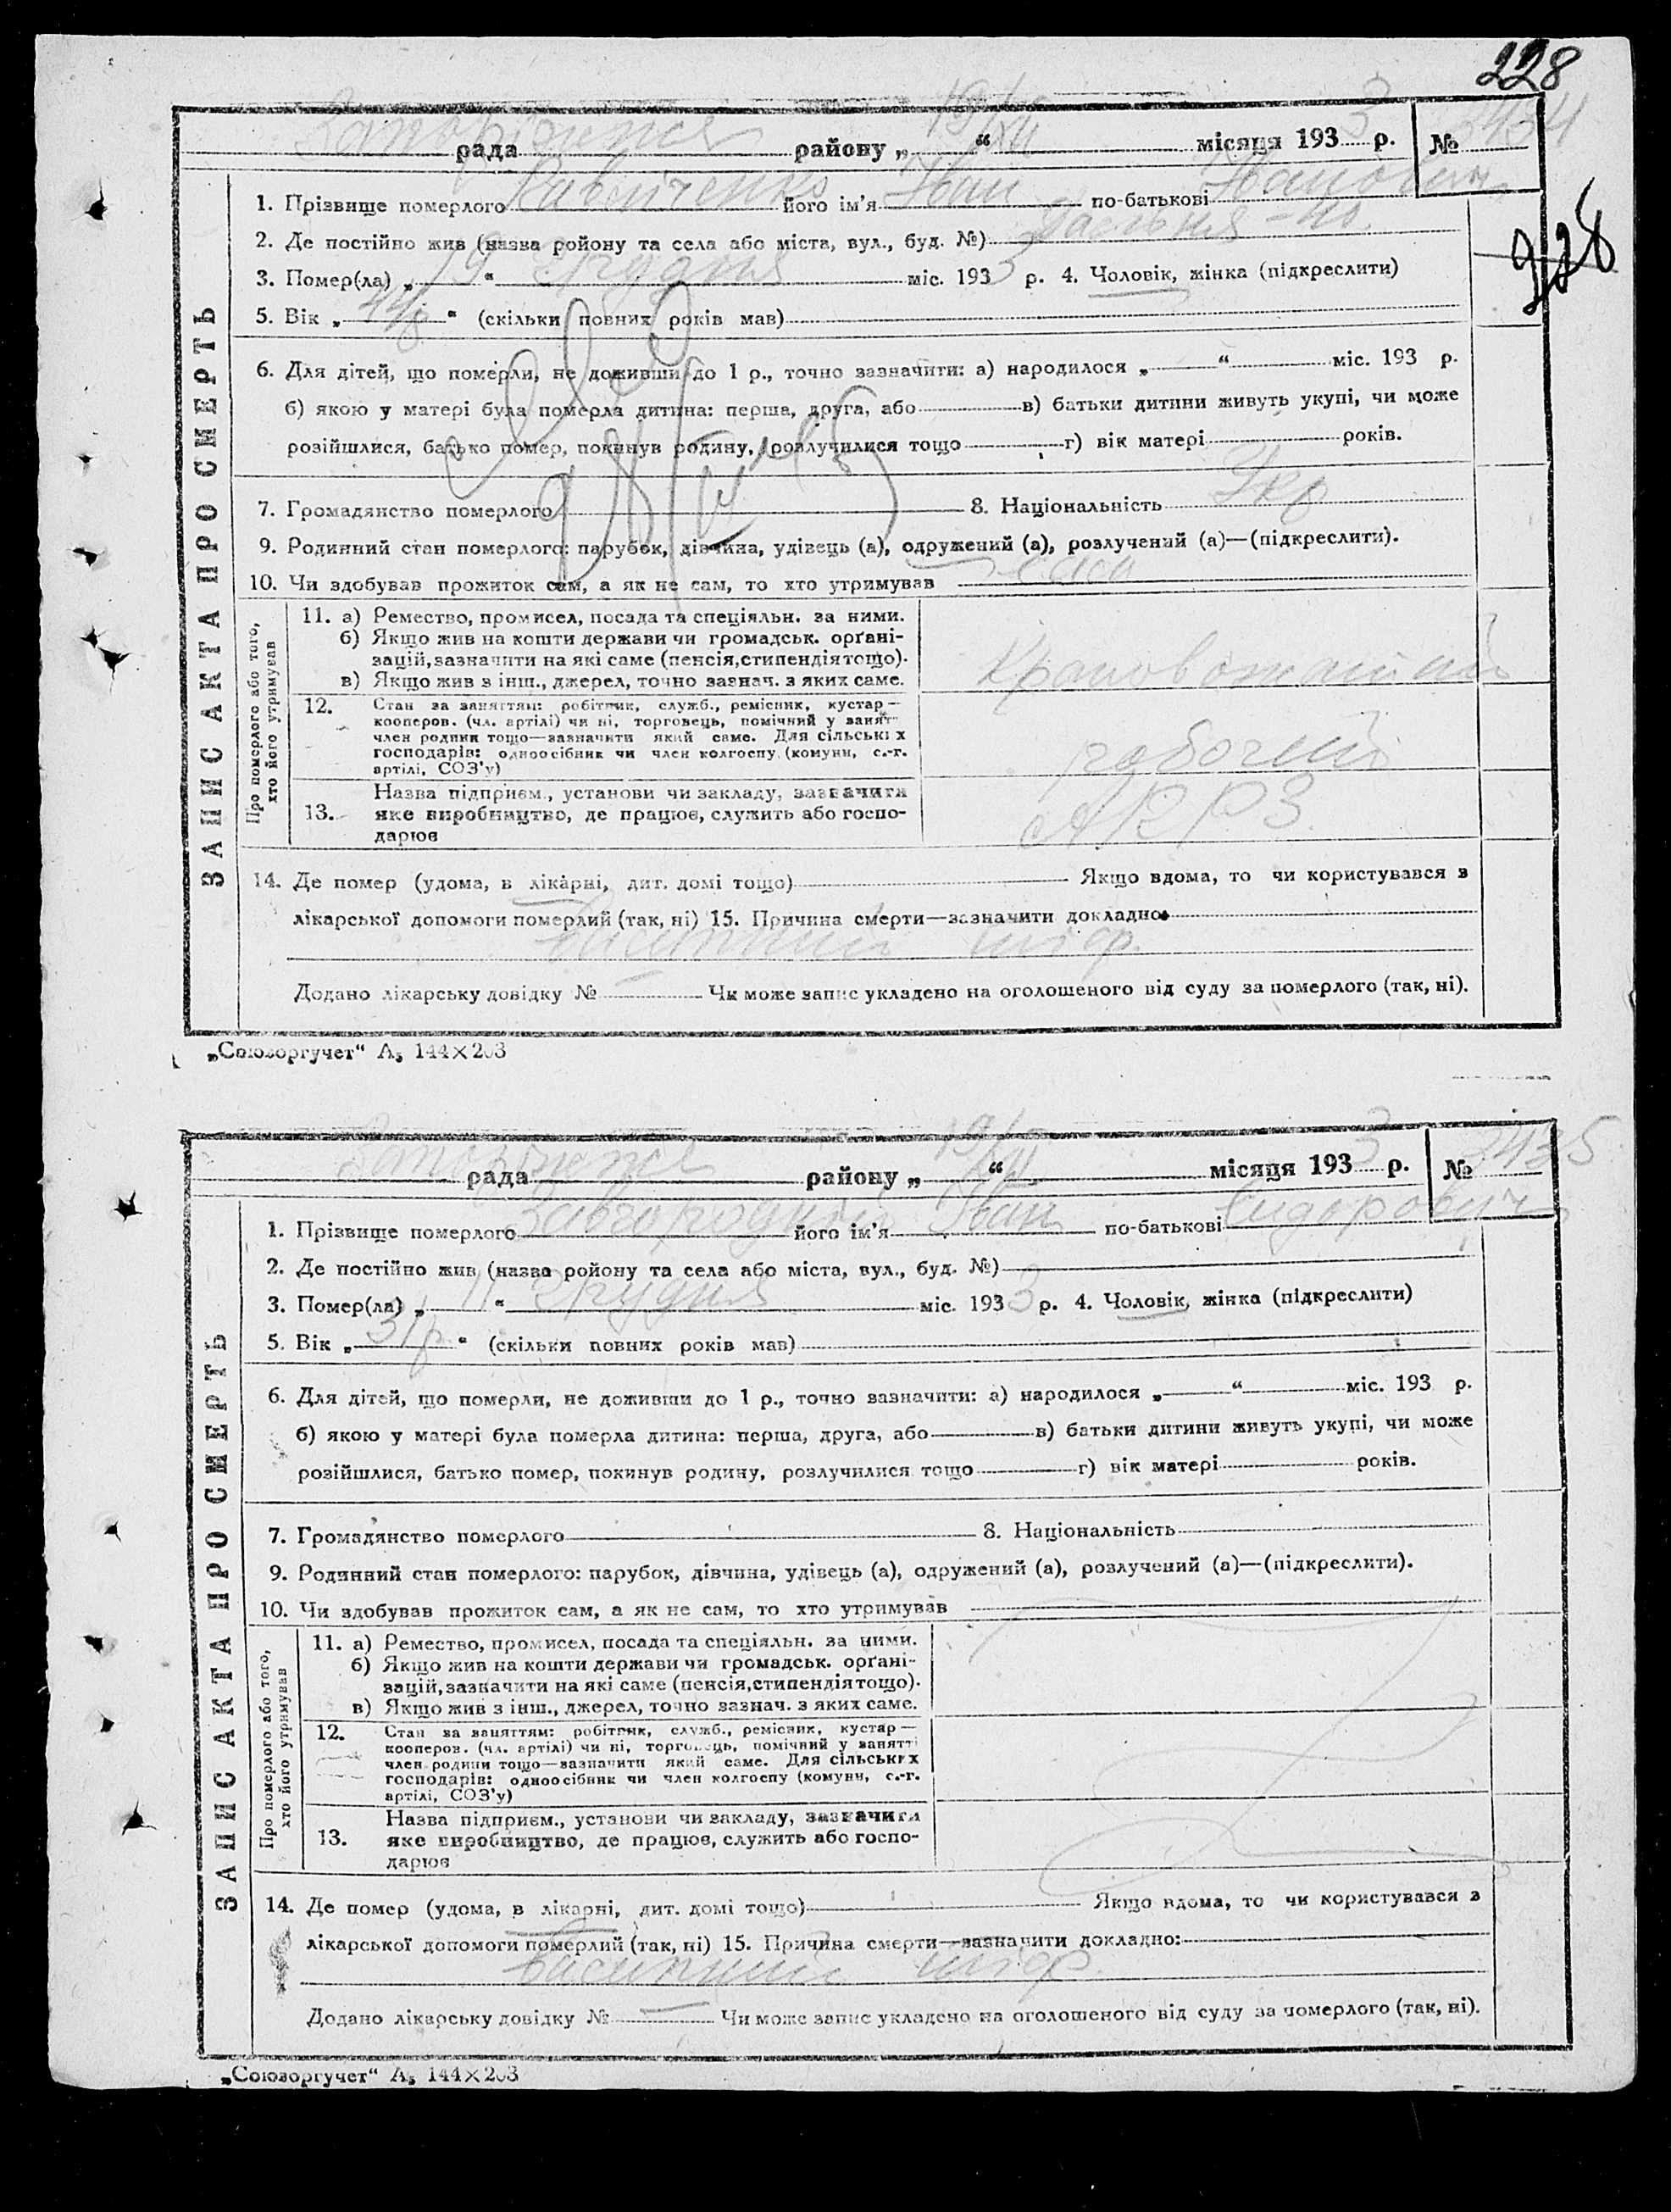 228
Запорізька рада району „ 19 “ XII місяця 193 3 р. № 3434
1. Прізвище померлого його ім'я Іван по-батькові Іванович
228
2. Де постійно жив (назва ройону та села або міста, вул., буд. №)
3. Помер(ла) „ 19 “ Грудня міс. 193 3 р. 4. Чоловік, жінка (підкреслити)
5. Вік „ “ (скільки повних років мав)
6. Для дітей, що померли, не доживши до 1 р., точно зазначити: а) народилося „ “ міс. 193 р.
б) якою у матері була померла дитина: перша, друга, або в) батьки дитини живуть укупі, чи може
розійшлися, батько помер, покинув родину, розлучилися тощо г) вік матері років.
7. Громадянство померлого 8. Національність Укр
9. Родинний стан померлого: парубок, дівчина, удівець (а), одружений (а), розлучений (а)—(підкреслити).
10. Чи здобував прожиток сам, а як не сам, то хто утримував сам
ЗАПИС АКТА ПРО СМЕРТЬ
Про померлого або того,
хто його утримував
11. а) Ремество, промисел, посада та спеціяльн. за ними.
б) Якщо жив на кошти держави чи громадськ. орґані-
зацій, зазначити на які саме (пенсія, стипендія тощо).
в) Якщо жив з інш., джерел, точно зазнач. з яких саме.
12. Стан за заняттям: робітник, служб., ремісник, кустар—
кооперов. (чл. артілі) чи ні, торговець, помічний у занят
член родини тощо—зазначити який саме. Для сільських
господарів: одноосібник чи член колгоспу (комуни, с.-г.
артілі, СОЗ'у)
рабочий
13. Назва підприєм., установи чи закладу, зазначити
яке виробництво, де працює, служить або госпо-
дарює
14. Де помер (удома, в лікарні, дит. домі тощо) Якщо вдома, то чи користувався з
лікарської допомоги померлий (так, ні) 15. Причина смерти—зазначити докладно:
Висипний тиф
Додано лікарську довідку № Чи може запис укладено на оголошеного від суду за померлого (так, ні).
„Союзоргучет“ А₅ 144×203
Запорізька рада району „ 19 “ XII місяця 193 3 р. № 3435
1. Прізвище померлого Завгородний його ім'я Іван по-батькові Сидорович
2. Де постійно жив (назва ройону та села або міста, вул., буд. №)
3. Помер(ла) „ 11 “ Грудня міс. 193 3 р. 4. Чоловік, жінка (підкреслити)
5. Вік „ 31 р “ (скільки повних років мав)
6. Для дітей, що померли, не доживши до 1 р., точно зазначити: а) народилося „ “ міс. 193 р.
б) якою у матері була померла дитина: перша, друга, або в) батьки дитини живуть укупі, чи може
розійшлися, батько помер, покинув родину, розлучилися тощо г) вік матері років.
7. Громадянство померлого 8. Національність
9. Родинний стан померлого: парубок, дівчина, удівець (а), одружений (а), розлучений (а)—(підкреслити).
10. Чи здобував прожиток сам, а як не сам, то хто утримував
ЗАПИС АКТА ПРО СМЕРТЬ
Про померлого або того,
хто його утримував
11. а) Ремество, промисел, посада та спеціяльн. за ними.
б) Якщо жив на кошти держави чи громадськ. орґані-
зацій, зазначити на які саме (пенсія, стипендія тощо).
в) Якщо жив з інш., джерел, точно зазнач. з яких саме.
12. Стан за заняттям: робітник, служб., ремісник, кустар—
кооперов. (чл. артілі) чи ні, торговець, помічний у занятті
член родини тощо—зазначити який саме. Для сільських
господарів: одноосібник чи член колгоспу (комуни, с.-г.
артілі, СОЗ'у)
13. Назва підприєм., установи чи закладу, зазначити
яке виробництво, де працює, служить або госпо-
дарює
14. Де помер (удома, в лікарні, дит. домі тощо) Якщо вдома, то чи користувався з
лікарської допомоги померлий (так, ні) 15. Причина смерти—зазначити докладно:
Висипний тиф
Додано лікарську довідку № Чи може запис укладено на оголошеного від суду за померлого (так, ні).
„Союзоргучет“ А₅ 144×203